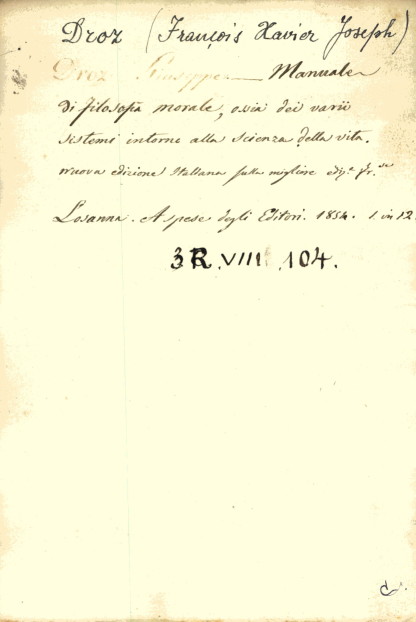 Droz (François Xavier Joseph)
Droz Giuseppe — Manuale
di filosofia morale, ossia dei varii
sistemi intorno alla scienza della vita.
nuova edizione Italiana sulla migliore ediz.e fr.se
Losanna. A spese degli Editori. 1854. 1. in 12
3 R. VIII 104.